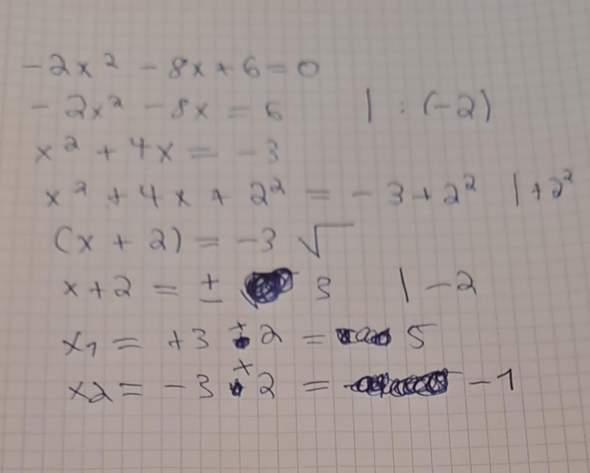 -2x² - 8x + 6 = 0
- 2x² - 8x = 6 | : (-2)
x² + 4x = -3
x² + 4x + 2² = -3 + 2² | +2²
(x + 2) = -3 √
x + 2 = ± 3 | -2
x₁ = +3 + 2 = 5
x2 = -3 + 2 = -1